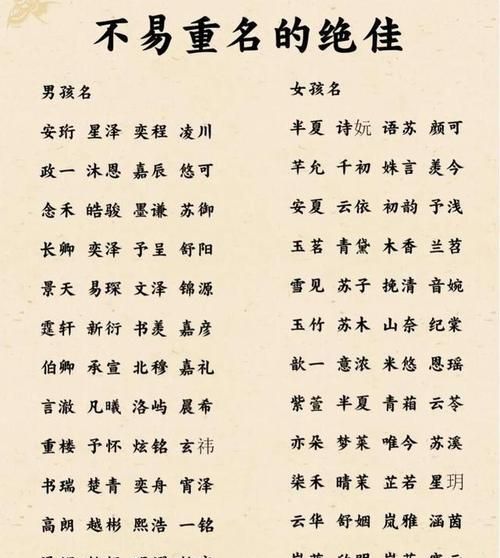 不易重名的绝佳
男孩名
安珩 星泽 奕程 凌川
政一 沐恩 嘉辰 悠可
念禾 皓骏 墨谦 苏御
长卿 奕泽 予呈 舒阳
景天 易琛 文泽 锦源
霆轩 新衍 书羡 嘉彦
伯卿 承宣 北穆 嘉礼
言澈 凡曦 洛屿 晨希
重楼 予怀 炫铭 玄祎
书瑞 楚青 奕舟 宵泽
高朗 越彬 熙浩 一铭
女孩名
半夏 诗妧 语苏 颜可
芊允 千初 姝言 羡今
安夏 云依 初韵 予浅
玉茗 青黛 木香 兰苕
雪见 苏子 挽清 音婉
玉竹 苏木 山奈 纪棠
歆一 意浓 米悠 恩瑶
紫萱 半夏 青葙 云苓
亦朵 梦莱 唯今 苏溪
柒禾 晴茉 芷若 星玥
云华 舒姻 岚雅 涵茵